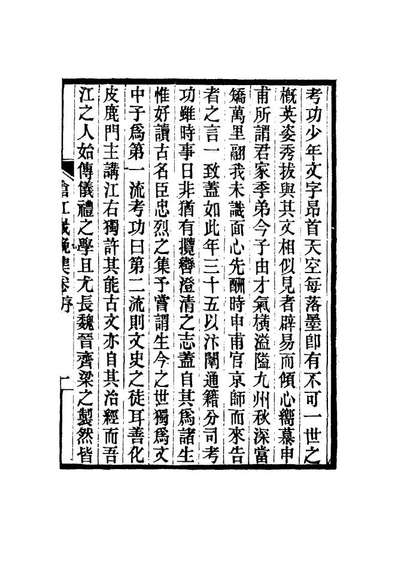 考功少年文字昂首天空每落墨卽有不可一世之
槪英姿秀拔與其文相似見者辟易而傾心嚮慕申
甫所謂君家季弟今子由才氣橫溢隘九州秋深當
矯萬里翮我未識面心先酬時申甫官京師而來告
者之言一致蓋如此年三十五以汴闈通籍分司考
功雖時事日非猶有攬轡澄清之志蓋自其爲諸生
惟好讀古名臣忠烈之集予嘗謂生今之世獨爲文
中子爲第一流考功曰第二流則文史之徒耳善化
皮鹿門主講江右獨許其能古文亦自其治經而吾
江之人始傳儀禮之學且尤長魏晉齊梁之製然皆
集卷序
一